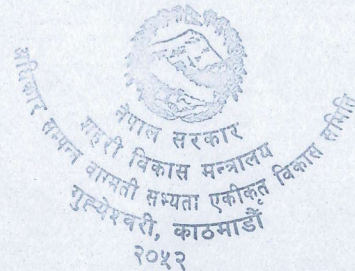 नेपाल सरकार
शहरी विकास मन्त्रालय
अधिकार सम्पन्न वाग्मती सभ्यता एकीकृत विकास समिति
गुह्येश्वरी, काठमाडौं
२०५२